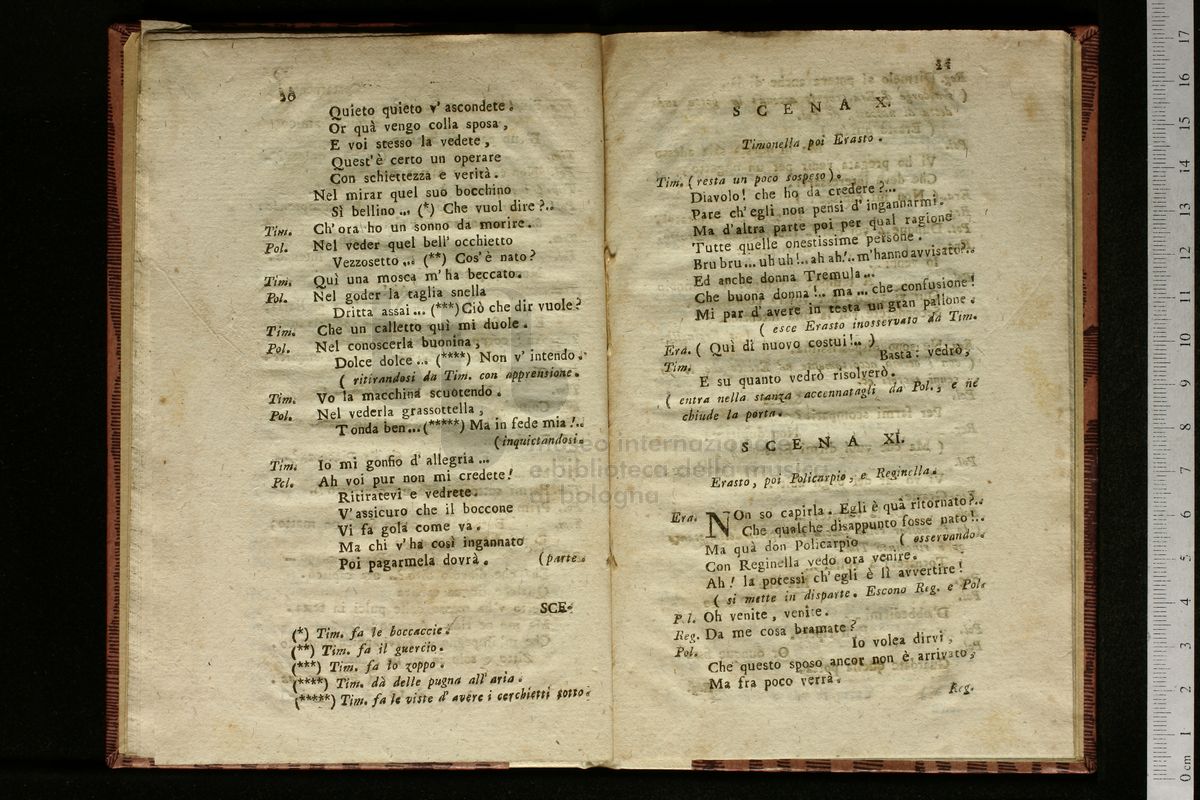 Quieto quieto v' ascondete.
Or quà vengo colla sposa,
E voi stesso la vedete,
Quest'è certo un operare
Con schiettezza e verità.
Nel mirar quel suo bocchino
Sì bellino... (*) Che vuol dire?..
Tim. Ch'ora ho un sonno da morire.
Pol. Nel veder quel bell' occhietto
Vezzosetto... (**) Cos'è nato?
Tim. Quì una mosca m'ha beccato.
Pol. Nel goder la taglia snella
Dritta assai... (***) Ciò che dir vuole?
Tim. Che un calletto quì mi duole.
Pol. Nel conoscerla buonina,
Dolce dolce... (****) Non v' intendo.
( ritirandosi da Tim. con apprensione.
Tim. Vo la macchina scuotendo.
Pol. Nel vederla grassottella,
Tonda ben...(*****) Ma in fede mia!..
(inquietandosi.
Tim. Io mi gonfio d' allegria...
Pol. Ah voi pur non mi credete!
Ritiratevi e vedrete.
V'assicuro che il boccone
Vi fa gola come va.
Ma chi v'ha così ingannato
Poi pagarmela dovrà. (parte.
SCE-
(*) Tim. fa le boccaccie.
(**) Tim. fa il guercio.
(***) Tim. fa lo zoppo.
(****) Tim. dà delle pugna all' aria.
(*****) Tim. fa le viste d' avere i cerchietti sotto.
SCENA X.
Timonella poi Erasto.
Tim. (resta un poco sospeso).
Diavolo! che ho da credere?...
Pare ch'egli non pensi d'ingannarmi.
Ma d'altra parte poi per qual ragione
Tutte quelle onestissime persone.
Bru bru... uh uh!.. ah ah!.. m'hanno avvisato?..
Ed anche donna Tremula...
Che buona donna!.. ma... che confusione!
Mi par d'avere in testa un gran pallone.
( esce Erasto inosservato da Tim.
Era. ( Quì di nuovo costui!.. )
Tim. Basta: vedrò,
E su quanto vedrò risolverò.
( entra nella stanza accennatagli da Pol., e ne
chiude la porta.
SCENA XI.
Erasto, poi Policarpio, e Reginella.
Era. NOn so capirla. Egli è quà ritornato?..
Che qualche disappunto fosse nato!..
Ma quà don Policarpio ( osservando.
Con Reginella vedo ora venire.
Ah! la potessi ch'egli è lì avvertire!
( si mette in disparte. Escono Reg. e Pol.
P l. Oh venite, venite.
Reg. Da me cosa bramate?
Pol. Io volea dirvi,
Che questo sposo ancor non è arrivato,
Ma fra poco verrà.
Reg.
museo internazionale
e biblioteca della musica
di bologna